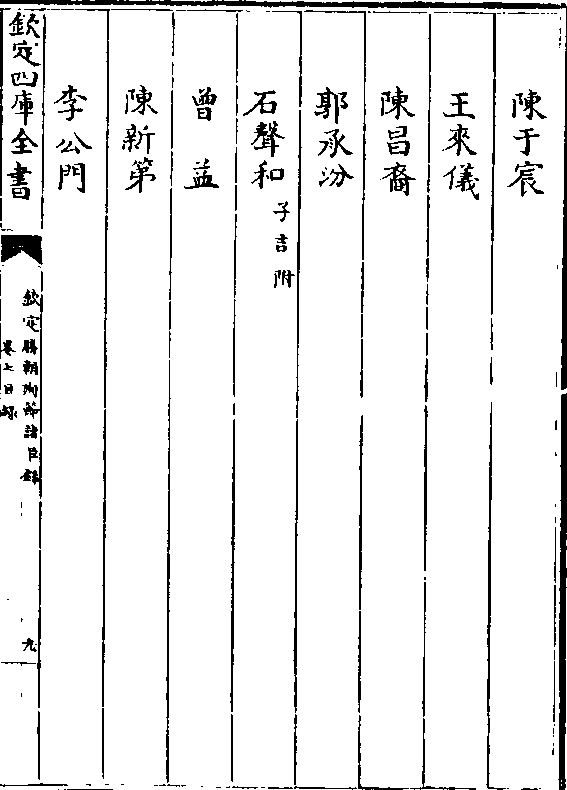 陳于宸
王來儀
陳昌裔
郭承汾
石聲和子吉附
曾益
陳新第
李公門
欽定四庫全書
欽定勝朝殉節諸臣錄
卷上目錄
九